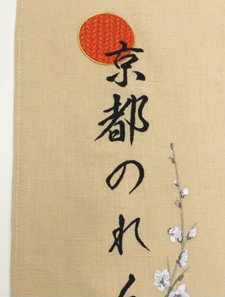 京都のれん